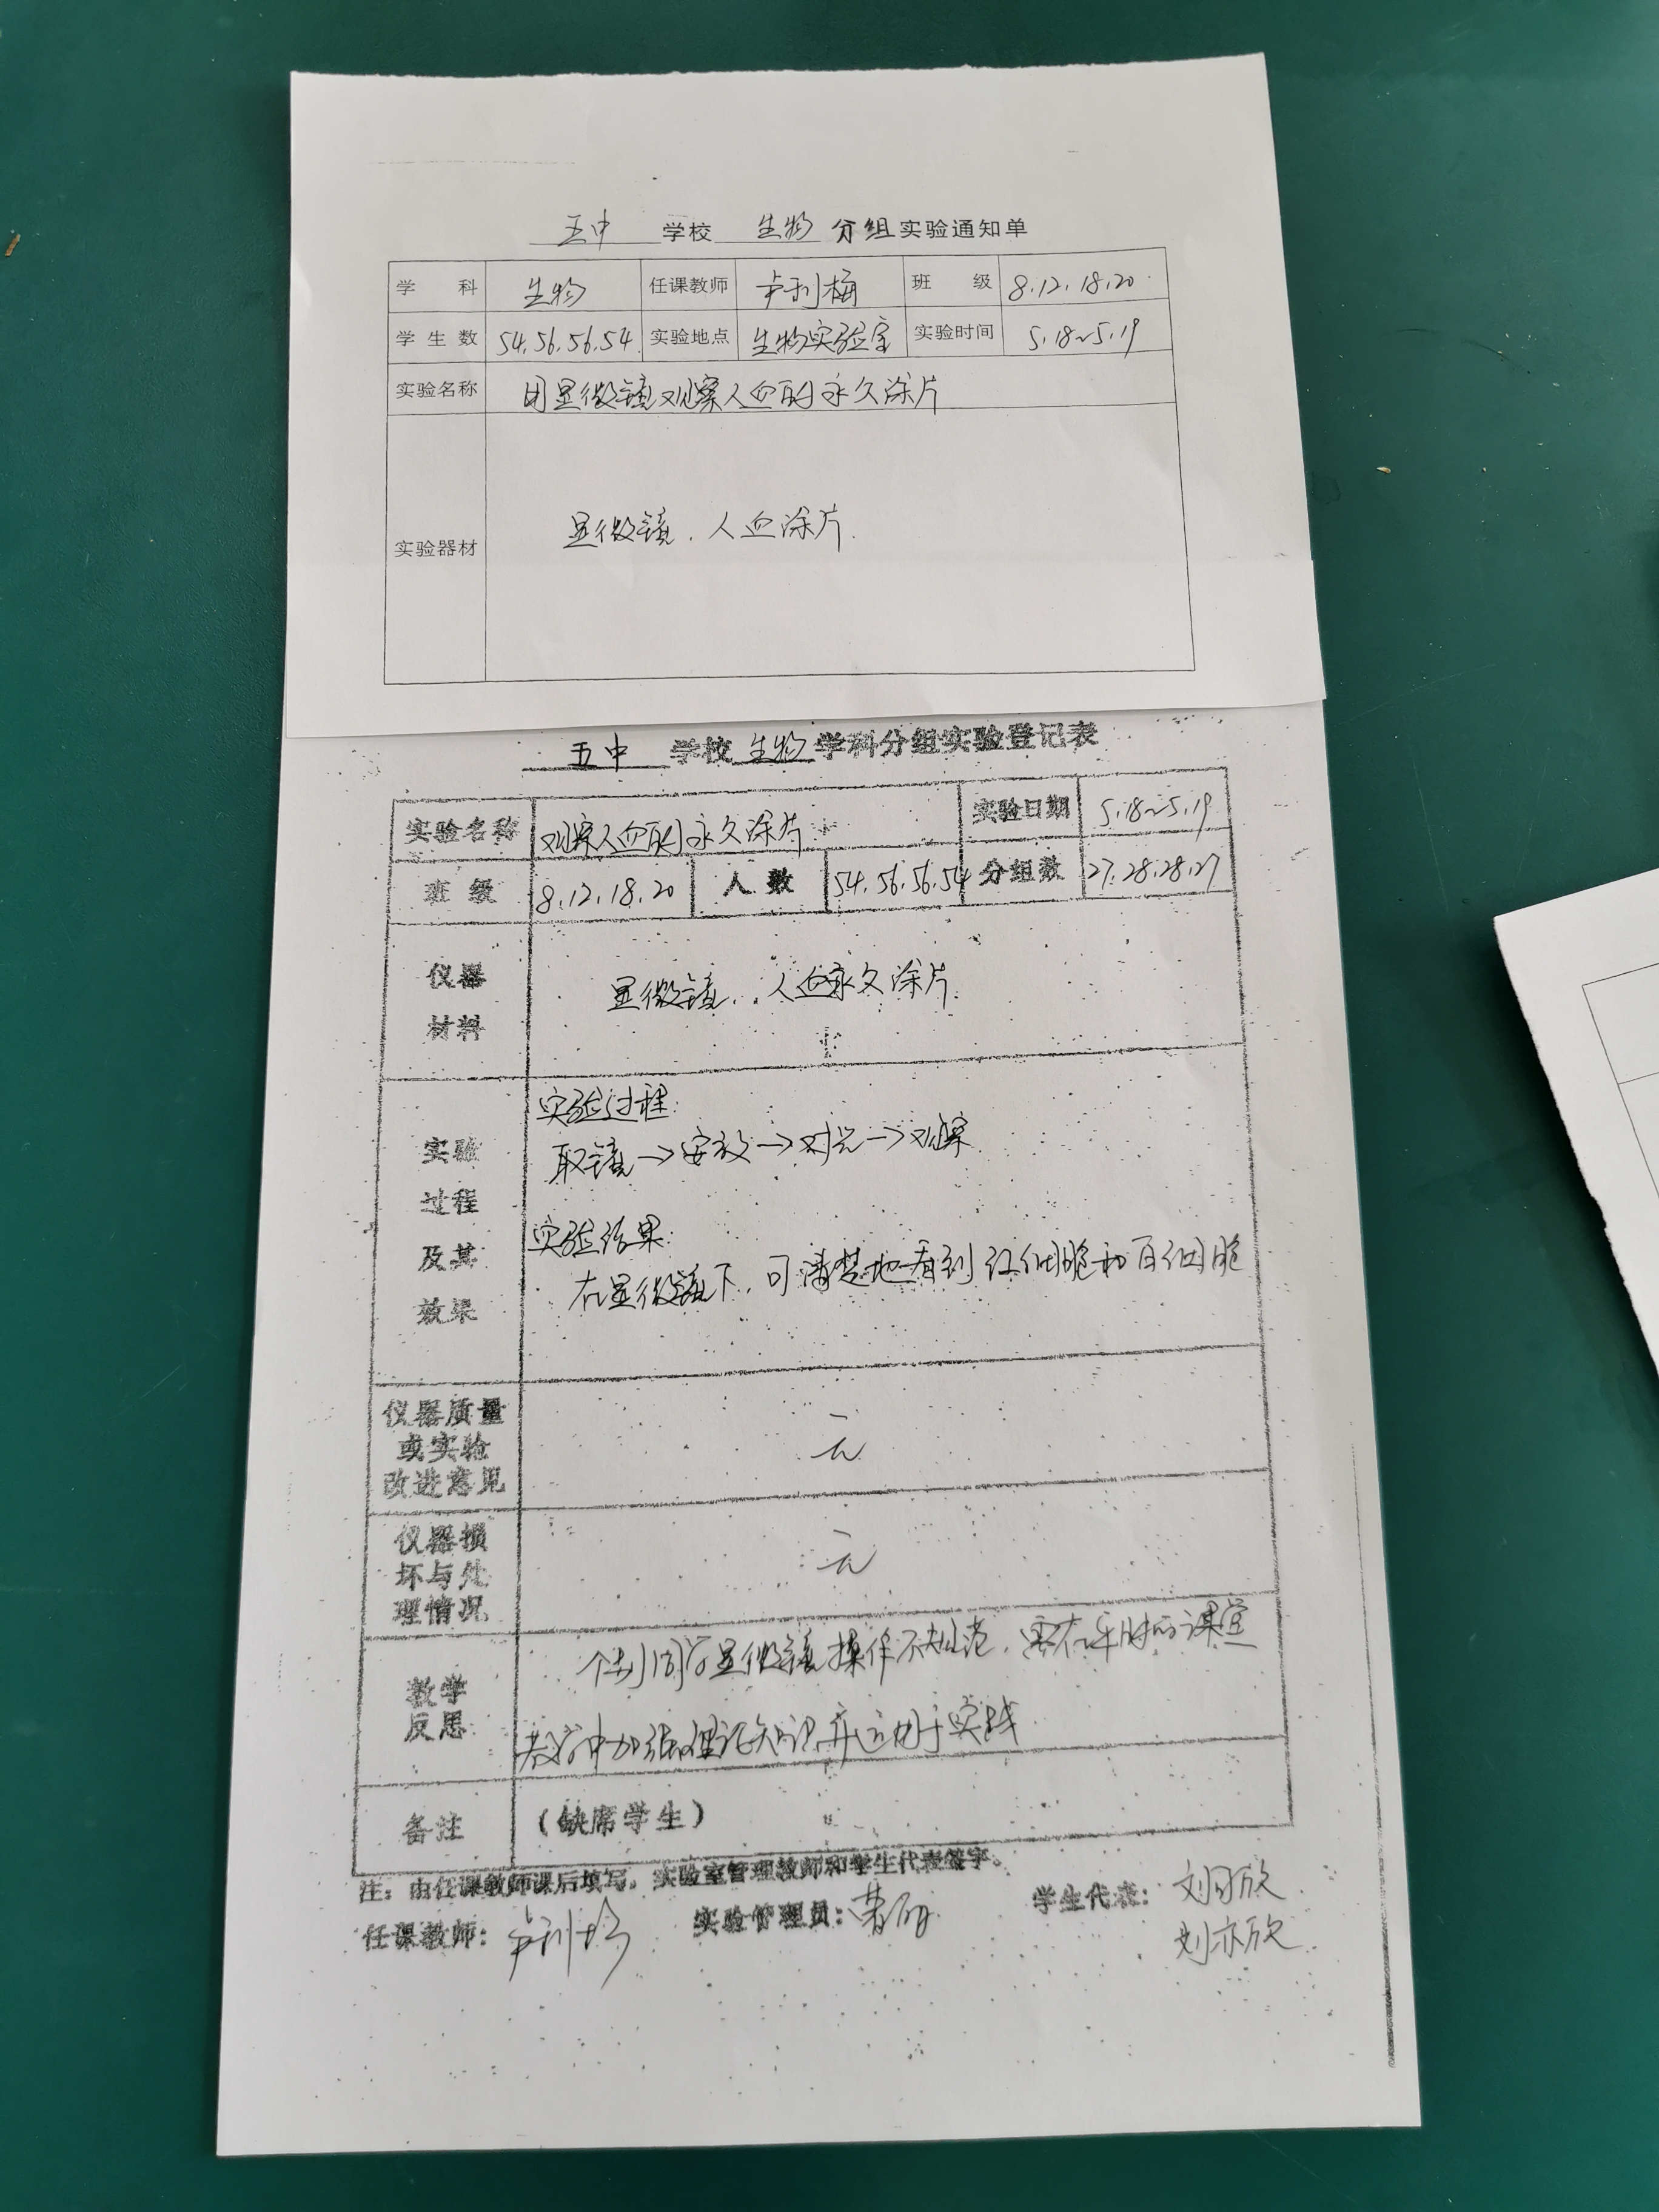 五中 学校 生物 分组实验通知单
学 科 生物 任课教师 卢利梅 班 级 8.12.18.20
学生数 54.56.56.54. 实验地点 生物实验室 实验时间 5.18~5.19
实验名称 用显微镜观察人血的永久涂片
实验器材 显微镜.人血涂片.
五中 学校 生物 学科分组实验登记表
实验名称 观察人血的永久涂片 实验日期 5.18~5.19
班 级 8.12.18.20 人 数 54.56.56.54 分组数 27.28.28.27
仪器
材料
显微镜.人血永久涂片.
实验
过程
及其
效果
实验过程:
取镜→安放→对光→观察
实验结果:
在显微镜下,可清楚地看到红细胞和白细胞
仪器质量
或实验
改进意见
无
仪器损
坏与处
理情况
无
教学
反思
个别同学显微镜操作不规范,需在平时的课堂
教学中加强理论知识并运用于实践
备注 (缺席学生)
注:由任课教师课后填写,实验室管理教师和学生代表签字。
任课教师: 卢利梅 实验管理员: 学生代表:
刘亦欣